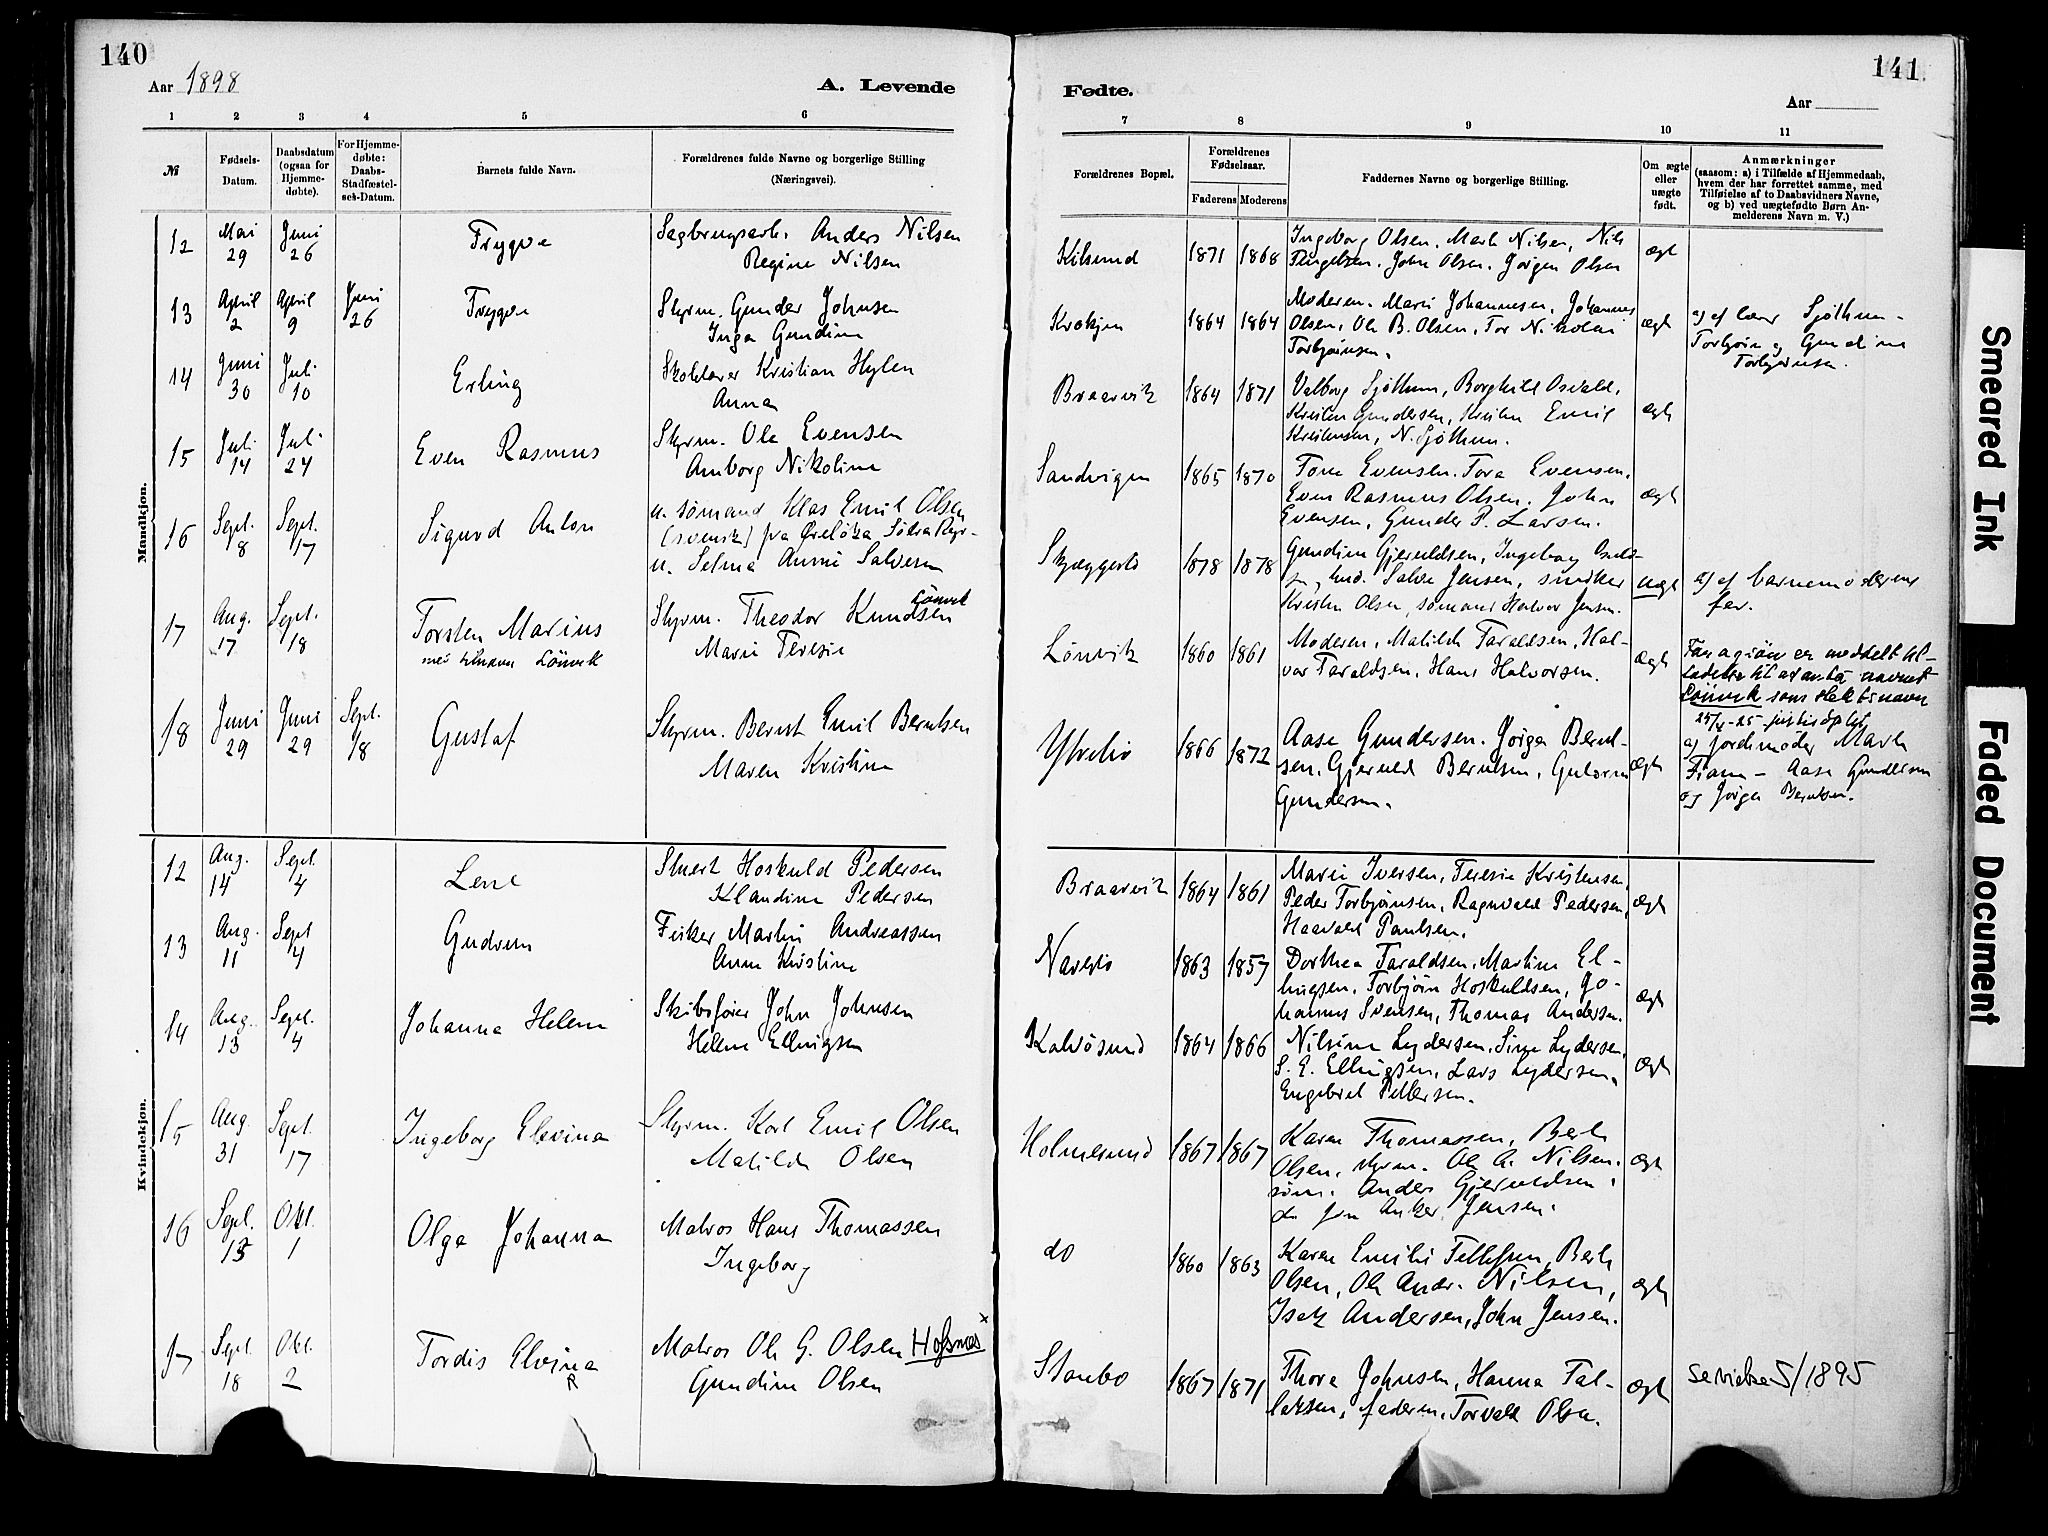 140
Aar 1898
A. Levende
1 2 3 4 5 6
№ Fødsels-Datum. Daabsdatum (ogsaa for Hjemme-døbte). For Hjemme-døbte: Daabs-Stadfæstel-ses-Datum. Barnets fulde Navn. Forældrenes fulde Navne og borgerlige Stilling (Næringsvei).
Mandkjøn.
12 Mai 29 Juni 26 Trygve Sagbrugsarb. Anders Nilsen
Regine Nilsen
13 April 2 April 9 Juni 26 Trygve Styrm. Gunder Johnsen
Inga Gundine
14 Juni 30 Juli 10 Erling Skolelærer Kristian Hylen
Anna
15 Juli 14 Juli 24 Even Rasmus Styrm. Ole Evensen
Amborg Nikoline
16 Sept. 8 Sept. 17 Sigurd Anton u. sømand Klas Emil Olsen
(svensk) fra
u. Selma Annie Salvesen
17 Aug. 17 Sept. 18 Torsten Marius Styrm. Theodor Knudsen Lönvik
med tilnavn Lönvik Marie Teresie
18 Juni 29 Juni 29 Sept. 18 Gustaf Styrm. Bernt Emil Berntsen
Maren Kristine
Kvindekjøn.
12 Aug. 14 Sept. 4 Lene Stuert Hoskuld Pedersen
Klaudine Pedersen
13 Aug. 11 Sept 4 Gudrun Fisker Martin Andreassen
Anne Kristine
14 Aug. 13 Sept. 4 Johanna Helene Skibsfører John Johnsen
Helene Ellingsen
15 Aug. 31 Sept. 17 Ingeborg Elevina Styrm. Karl Emil Olsen
Matilde Olsen
16 Sept. 13 Okt. 1 Olga Johanna Matros Hans Thomassen
Ingeborg
17 Sept. 18 Okt. 2 Tordis Elvina Matros Ole G. Olsen Hofsnæs x
Gundine Olsen
141.
Fødte.
Aar
7 8 9 10 11
Forældrenes Bopæl. Forældrenes Fødselsaar. Faderens Moderens Faddernes Navne og borgerlige Stilling. Om ægte eller uægte født. Anmærkninger
(saasom: a) i Tilfælde af Hjemmedaab,
hvem der har forrettet samme, med
Tilføielse af to Daabsvidners Navne,
og b) ved uægtefødte Børn An-
melderens Navn m. V.)
Kilsund 1871 1868 Ingeborg Olsen. Marte Nilsen, Nils
John Olsen. Jørgen Olsen ægt
1864 1864 Moderen. Marie Johannesen, Johannes
Olsen, Ole B. Olsen, Tor Nikolai ægt
Torbjørnsen.
a) af lærer Sjøthun -
Torbjørn og Gundine
Torbjørnsen.
Braarvik 1864 1871 Valborg Sjøthun, Borghild Osvald,
Kristen Gundersen, Kristen Emil ægt
Kristensen, N. Sjøthun.
Sandvigen 1865 1870 Tone Evensen. Tora Evensen.
Even Rasmus Olsen. John ægt
Evensen, Gunder P. Larsen.
1878 1878 Gundine Gjeruldsen, Ingeborg
Salve Jensen, snidker uægt
Kristen Olsen, sømand Halvor Jensen.
a) af barnemoderens
far.
Lönvik 1860 1861 Moderen, Matilde Taraldsen, Hal-
vor Taraldsen, Hans Halvorsen. ægt
er meddelt til-
ladelse til at anta navnet
Lönvik som slektsnavn
25/4-25
1866 1872 Aase Gundersen. Jörgen Bernt-
sen. Gjeruld Berntsen, Gutorm ægt
Gundersen.
a) jordemoder Marte
Fiane - Aase Gundersen
og Jörgen Berntsen.
Braarvik 1864 1861 Marie Iversen, Teresie Kristensen,
Peder Torbjørnsen, Ragnvald Pedersen, ægt
Haavald Paulsen.
Navestø 1863 1857 Dorthea Taraldsen, Martine El-
lingsen. Torbjørn Hoskuldsen, Jo- ægt
hannes Svensen, Thomas Andersen.
Kalvösund 1864 1866 Nilsine Lydersen, Sine Lydersen,
S. E. Ellingsen, Lars Lydersen, ægt
Engebret Pettersen.
Holmesund 1867 1867 Karen Thomassen, Berte
Olsen, styrm. Ole A. Nilsen. ægt
søm. Anders Gjeruldsen,
do Anker Jensen.
do 1860 1863 Karen Emilie Tellefsen, Berte
Olsen, Ole Andr. Nilsen, ægt
Isak Andersen, John Jensen.
Staubo 1867 1871 Thora Johnsen, Hanna Tal-
laksen, faderen, Torvald Olsen. ægt
se vielse 5/1895
Smeared Ink
Faded Document